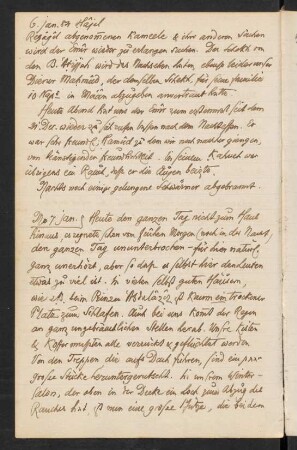 6. Jan. 84 Hâjel
abgenommenen Kameele & ihr anderen Sachen
wird der Emîr wieder zu erlangen suchen. Der Schêkh von
den B. wird das Nachsehen haben, ebenso leider unser
Diener Maḥmûd, der demselben Schêkh für seine Familie
10 in Ma'ân abzugeben anvertraut hatte.
Heute Abend hat uns der Emîr zum erstenmal seit dem
31. Dec. wieder zu sich rufen lassen nach dem Nachtessen. Er
war sehr freundlich, während dem wir noch weiter giengen,
von Freundlichkeit. In seinem Kahwe war
übrigens ein Rauch, dass er die Augen beizte.
Nachts noch einige gelungene Schwärmer abgebrannt.
Mo 7. Jan. Heute den ganzen Tag nicht zum Haus
hinaus. Es regnete schon vom frühen Morgen (noch in der Nacht)
den ganzen Tag ununterbrochen – für hier natürl.
ganz unerhört, aber so dass es selbst hier den Leuten
etwas zu viel ist. In vielen selbst guten Häusern,
wie z.B. beim Prinzen ist kaum ein trockener
Platz zum Schlafen. Auch bei uns kommt der Regen
an ganz ungebräuchlichen Stellen herab. Unsre Kisten
& Koffer mussten alle verrückt & geflüchtet werden.
Von den Treppen die aufs Dach führen, sind ein paar
grosse Stücke heruntergerutscht. In unsrem Winter-
salon, der oben in der Decke ein Loch zum Abzug des
Rauches hat, ist nun eine grosse Pfütze, die beiden